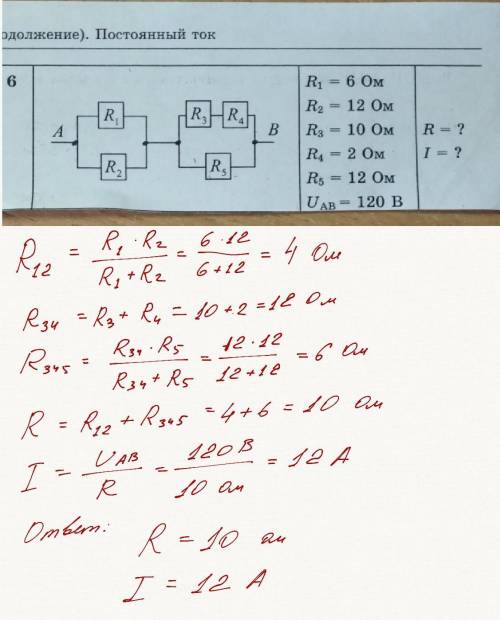 одолжение). Постоянный ток
6
R₁ = 6 Ом
R₂ = 12 Ом
R₃ = 10 Ом
R₄ = 2 Ом
R₅ = 12 Ом
U_AB = 120 В
R = ?
I = ?
A
R₁
R₂
R₃
R₄
R₅
B
R₁₂ = R₁ · R₂ / R₁ + R₂ = 6 · 12 / 6 + 12 = 4 Ом
R₃₄ = R₃ + R₄ = 10 + 2 = 12 Ом
R₃₄₅ = R₃₄ · R₅ / R₃₄ + R₅ = 12 · 12 / 12 + 12 = 6 Ом
R = R₁₂ + R₃₄₅ = 4 + 6 = 10 Ом
I = U_AB / R = 120 В / 10 Ом = 12 А
Ответ:
R = 10 Ом
I = 12 А